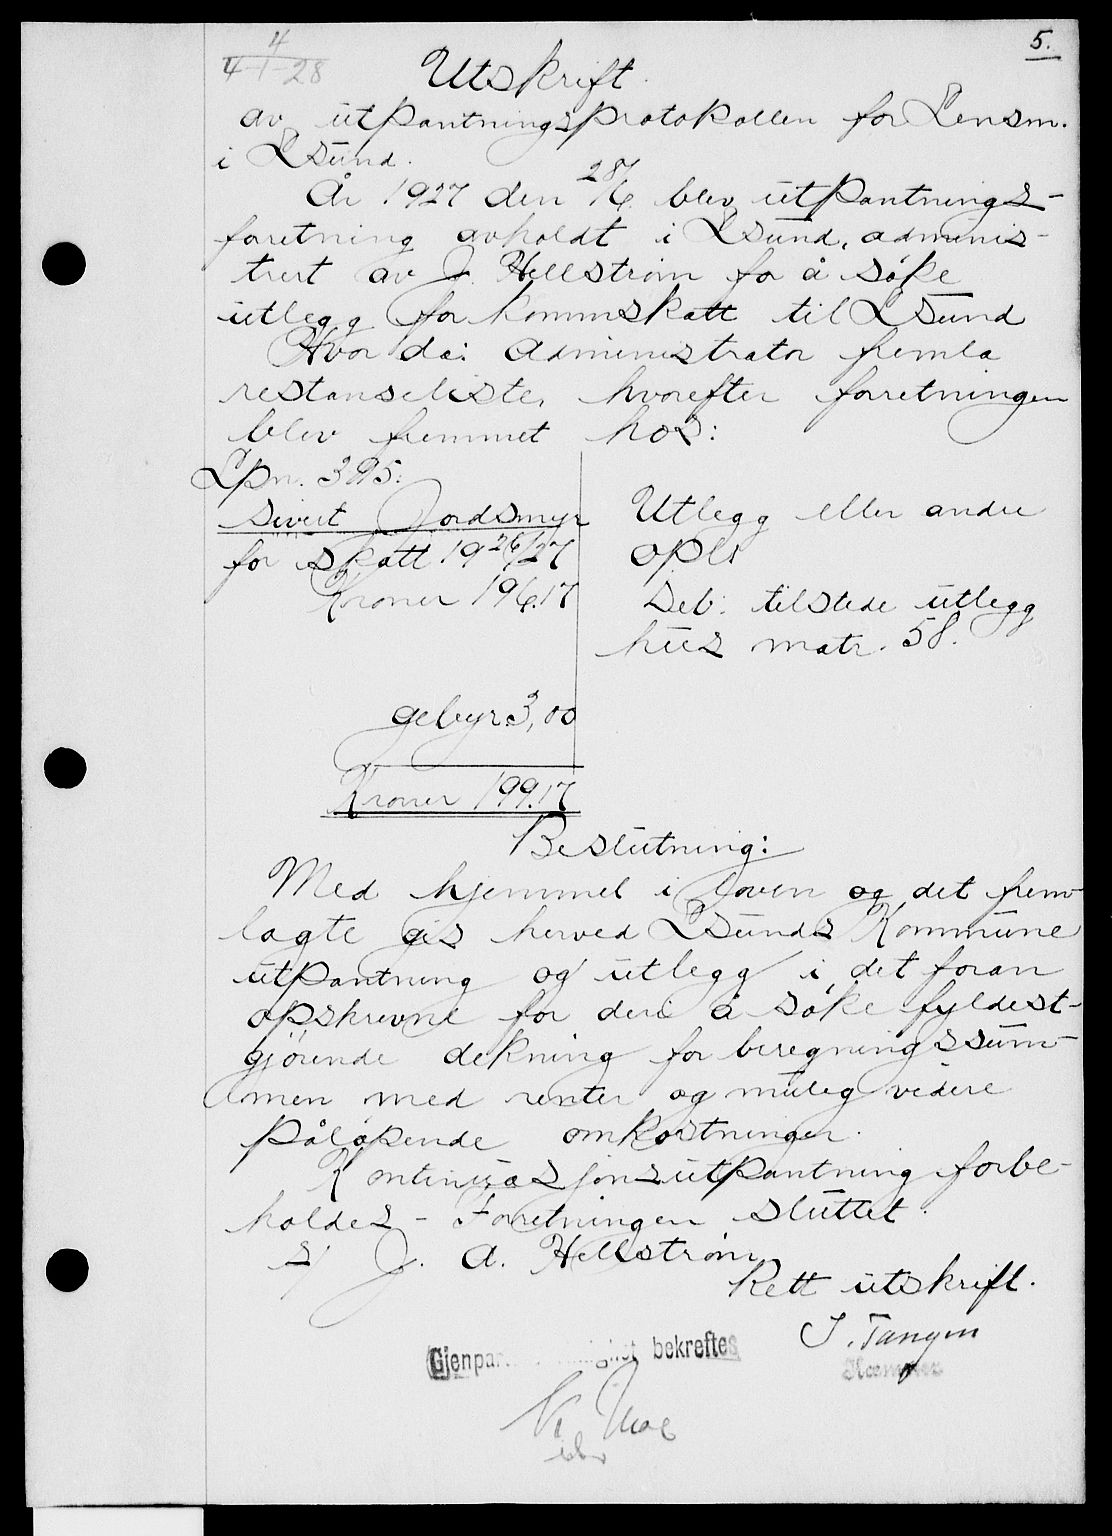 5.
4/4-28
Utskrift
av utpantningsprotokollen for Lensm.
i Lsund.
År 1927 den 28/6 blev utpantnings-
foretning avholdt i Lsund, adminis-
trert av J. Hellstrøm for å søke
utlegg for kommskatt til Lsund
Hvor da: Administrator fremla
restanseliste, hvorefter forretningen
blev fremmet hos:
Lpn. 395:
Sivert Jordsmyr
for skatt 1926/27
Kroner 196.17
gebyr 3,00
Kroner 199.17
Utlegg eller andre
opl:
Deb: tilstede utlegg
hus matr. 58.
Beslutning:
Med hjemmel i loven og det frem-
lagte gis herved Lsunds Kommune
utpantning og utlegg i det foran
opskrevne for deri å søke fyldest-
gjørende dekning for beregningssum-
men med renter og mulig videre
påløpende omkostninger.
Kontinuasjonsutpantning forbe-
holdes - Foretningen sluttet.
s/ J. A. Hellstrøm
Rett utskrift.
S. Tangen
bekreftes